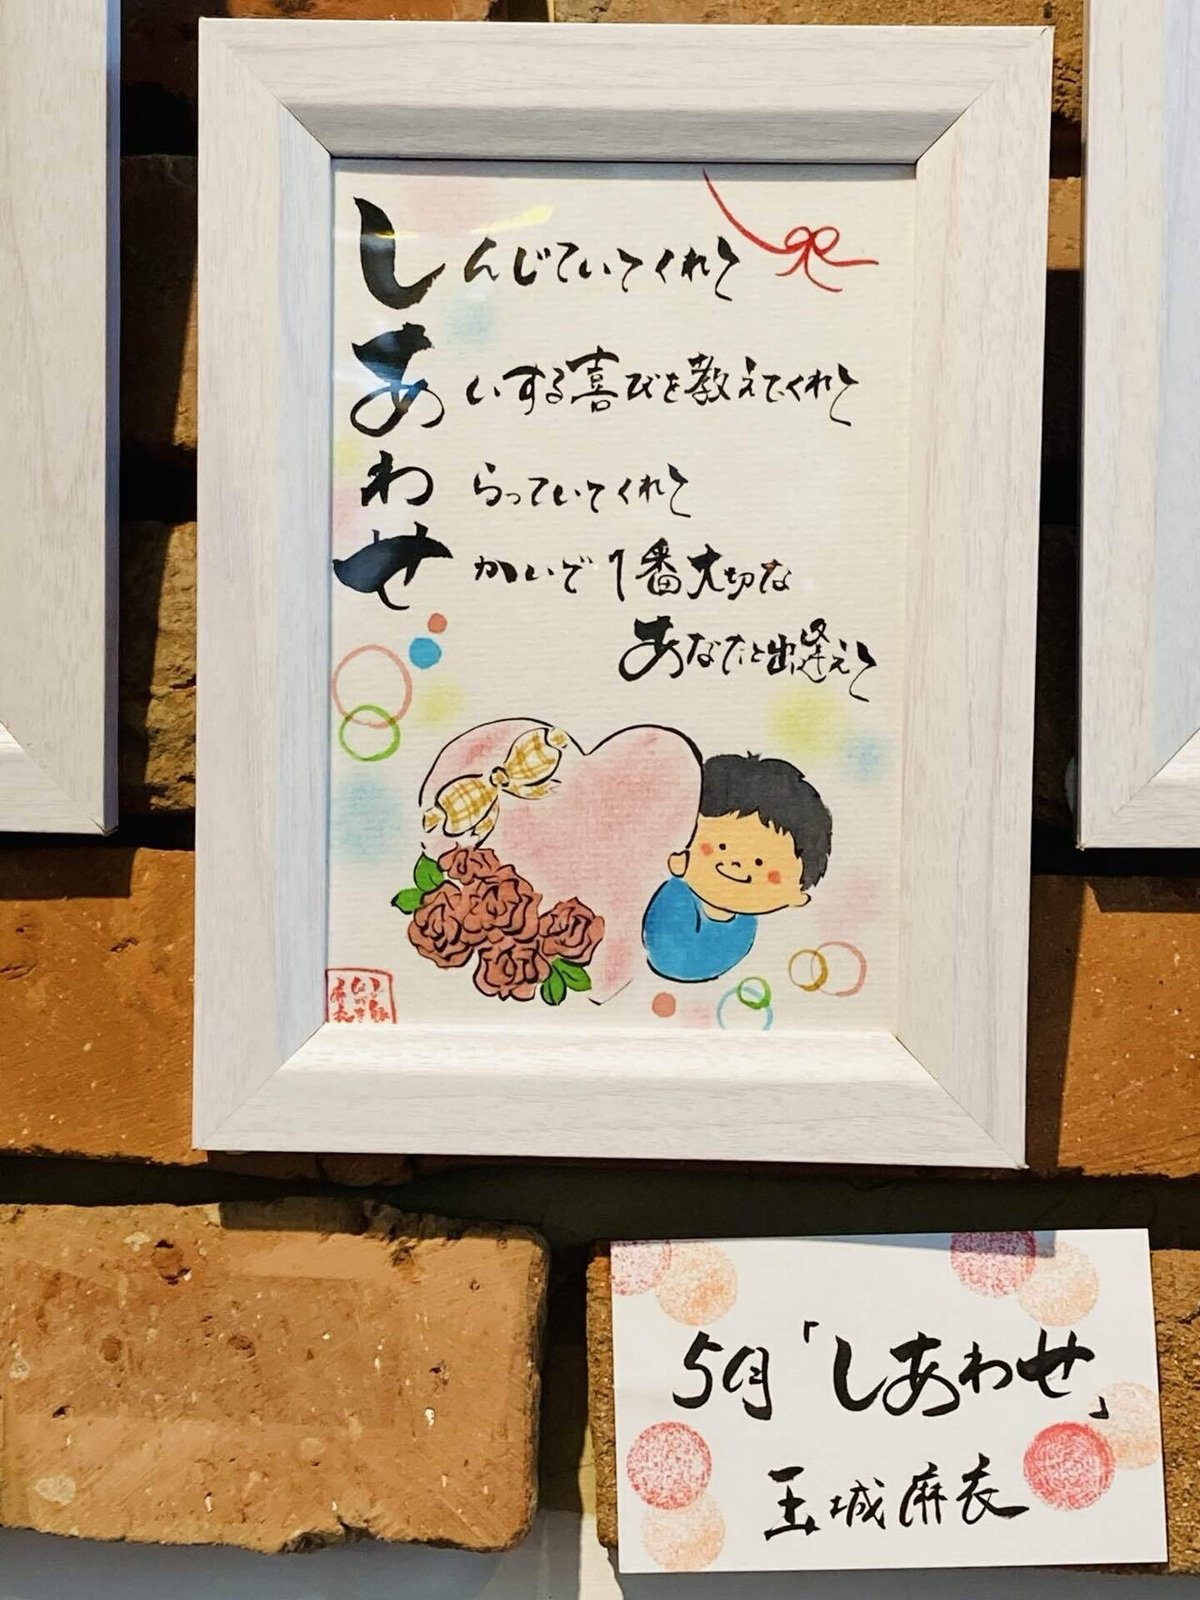 しんじていてくれて
あいする喜びを教えてくれて
わらっていてくれて
せかいで1番大切な
あなたと出逢えて
5月「しあわせ」
玉城麻衣